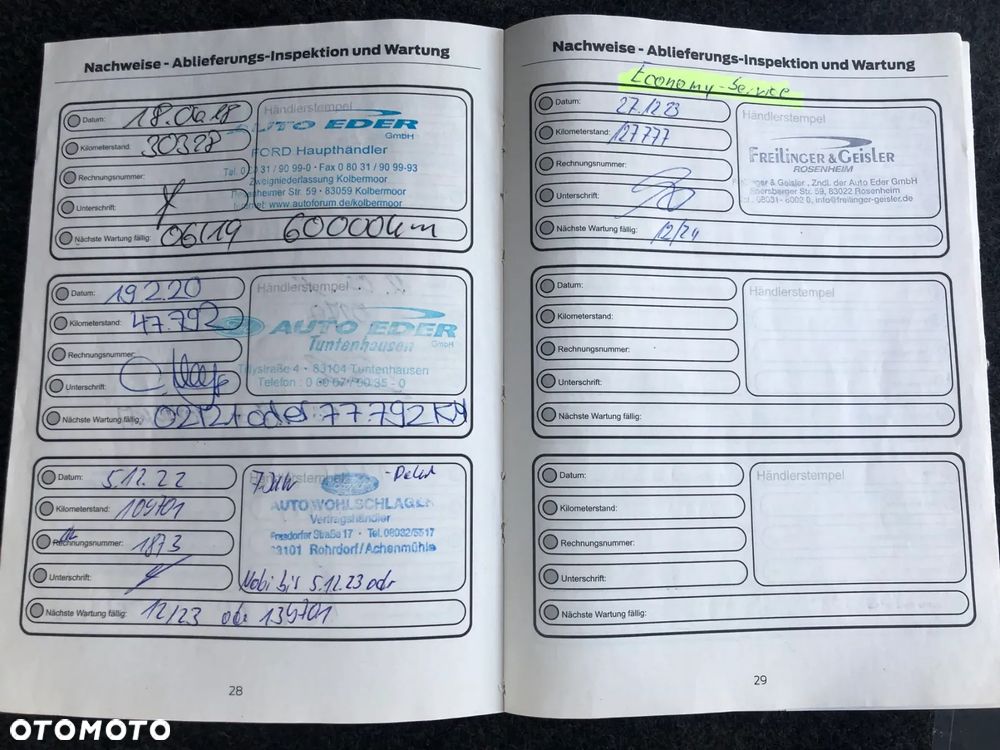 Nachweise - Ablieferungs-Inspektion und Wartung
Datum: 18.06.18
Kilometerstand: 30328
Rechnungsnummer:
Unterschrift:
Händlerstempel
AUTO EDER
GmbH
FORD Haupthändler
Tel. 0 80 31 / 90 99-0 · Fax 0 80 31 / 90 99-93
Zweigniederlassung Kolbermoor
Rosenheimer Str. 59 · 83059 Kolbermoor
Internet: www.autoforum.de/kolbermoor
Nächste Wartung fällig: 06/19 60000km
Datum: 19.2.20
Kilometerstand: 47.792
Rechnungsnummer:
Unterschrift:
Händlerstempel
AUTO EDER
Tuntenhausen GmbH
Tillystraße 4 · 83104 Tuntenhausen
Telefon
Nächste Wartung fällig: 02/21 oder 77.792 KM
Datum: 5.12.22
Kilometerstand: 109701
Rechnungsnummer: 1873
Unterschrift:
Händlerstempel
AUTO WOHLSCHLAGER
Vertragshändler
Straße 17 · Tel. 08032/5517
83101 Rohrdorf/Achenmühle
Mobi bis 5.12.23 odr
Nächste Wartung fällig: 12/23 ode 139701
28
Nachweise - Ablieferungs-Inspektion und Wartung
Economy-Service
Datum: 27.12.23
Kilometerstand: 127777
Rechnungsnummer:
Unterschrift:
Händlerstempel
FREILINGER & GEISLER
ROSENHEIM
Freilinger & Geisler, Zndl. der Auto Eder GmbH
Str. 59, 83022 Rosenheim
08031-6002 0, info@freilinger-geisler.de
Nächste Wartung fällig: 12/24
Datum:
Kilometerstand:
Rechnungsnummer:
Unterschrift:
Händlerstempel
Nächste Wartung fällig:
Datum:
Kilometerstand:
Rechnungsnummer:
Unterschrift:
Händlerstempel
Nächste Wartung fällig:
29
OTOMOTO